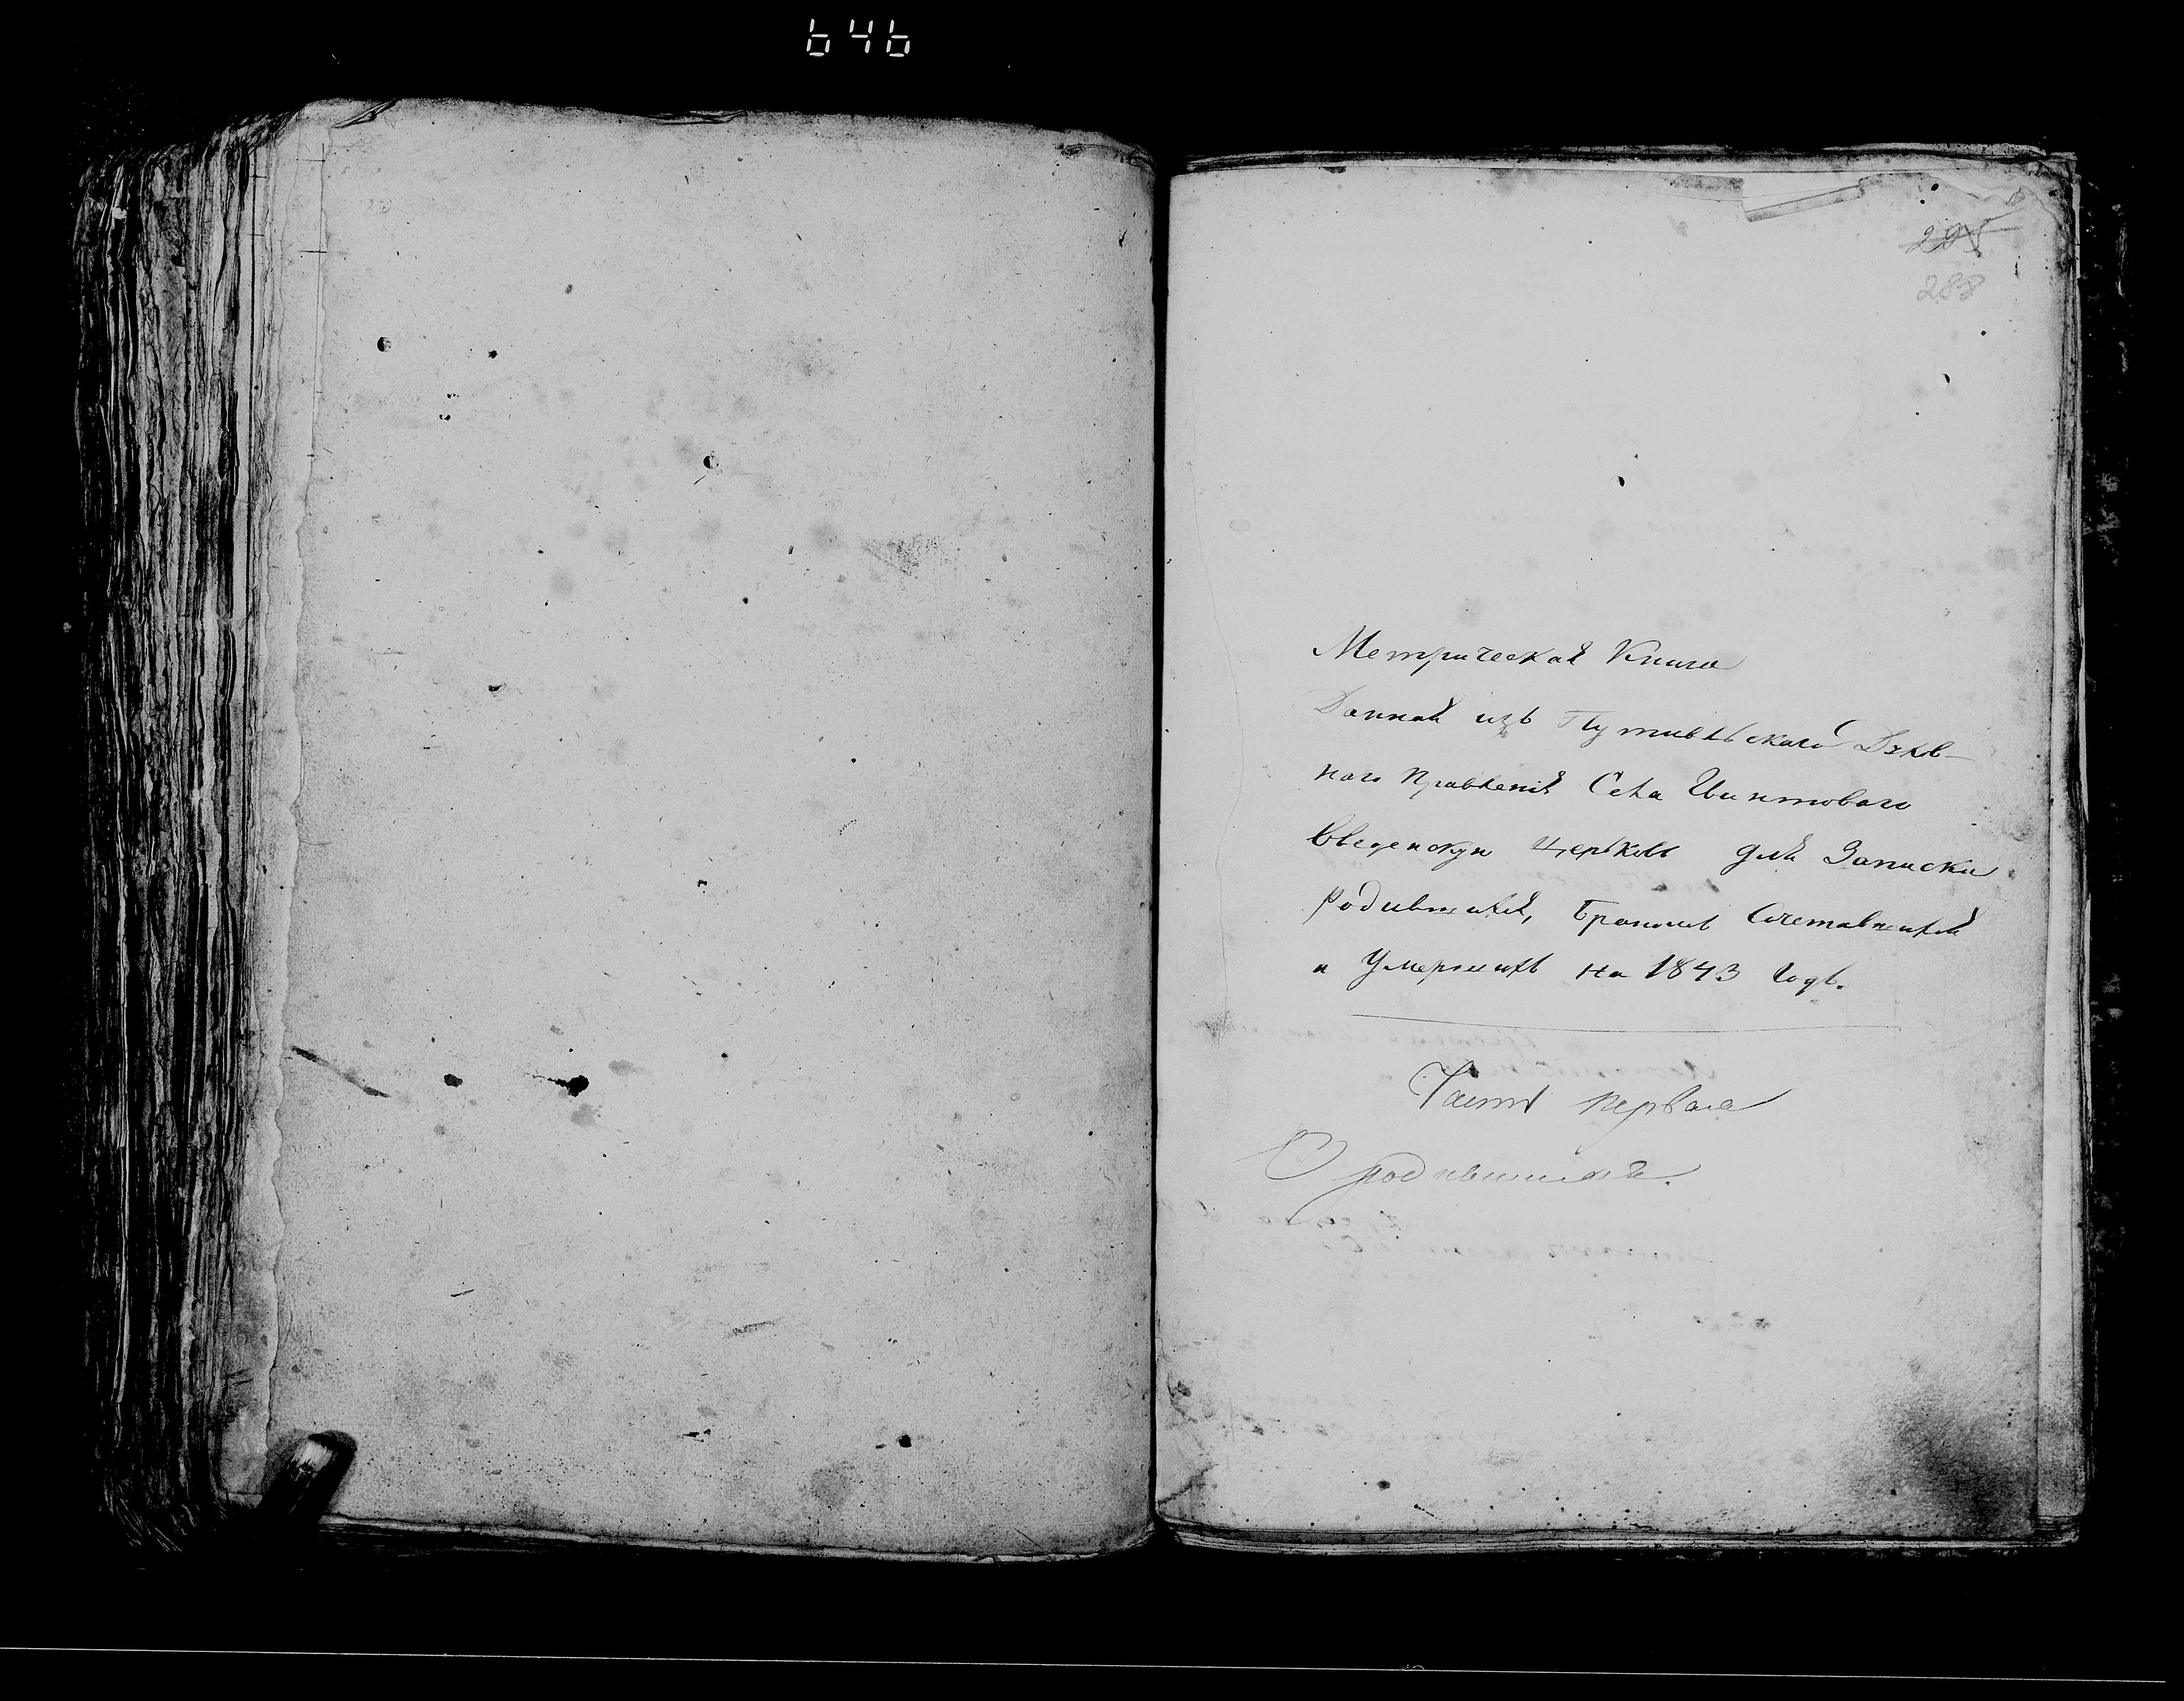 646
295
288
Метрическая Книга
Данная изъ Путивльскаго Духов-
наго Правленія Села Гвинтоваго
Введенскую церковь для Записки
родившихся, Бракомъ Сочетавшихся
и Умершихъ на 1843 годъ.
Часть первая
О родившихся.